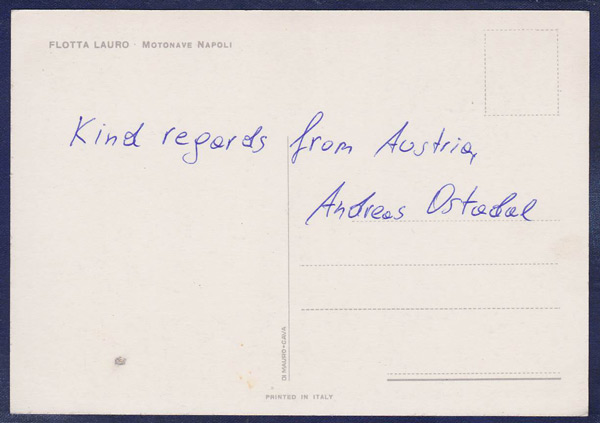 FLOTTA LAURO · MOTONAVE NAPOLI
Kind regards from Austria,
Andreas Ostadal
DI MAURO-CAVA
PRINTED IN ITALY